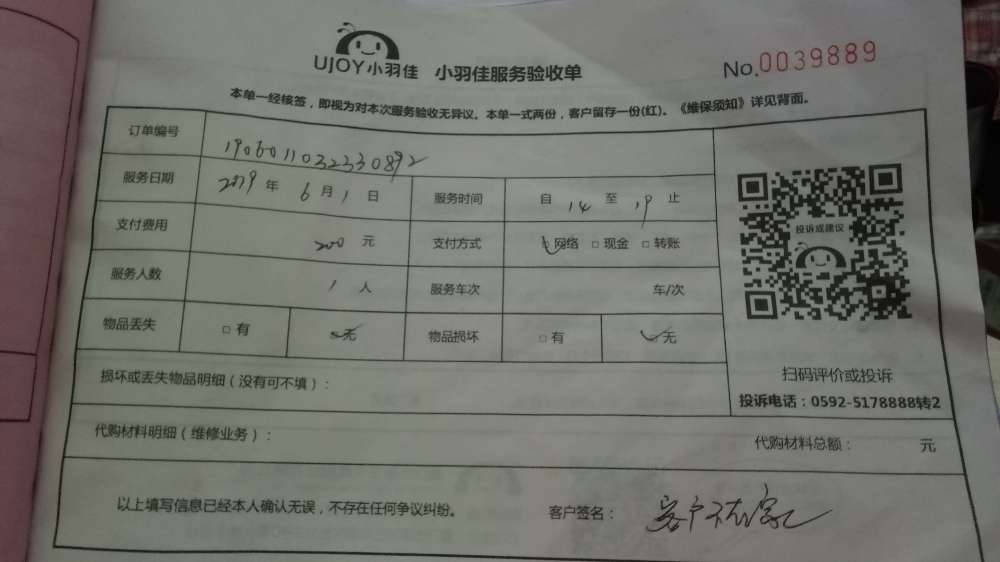 UJOY小羽佳 小羽佳服务验收单 No.0039889
本单一经核签，即视为对本次服务验收无异议。本单一式两份，客户留存一份(红)。《维保须知》详见背面。
订单编号 1906011032330892
服务日期 2019年 6月1日 服务时间 自 14 至 19 止
支付费用 200 元 支付方式 网络 □ 现金 □ 转账
服务人数 1 人 服务车次 车/次
物品丢失 □ 有 无 物品损坏 □ 有 无
投诉或建议
扫码评价或投诉
投诉电话：0592-5178888转2
损坏或丢失物品明细（没有可不填）：
代购材料明细（维修业务）： 代购材料总额： 元
以上填写信息已经本人确认无误，不存在任何争议纠纷。 客户签名： 客户不在家